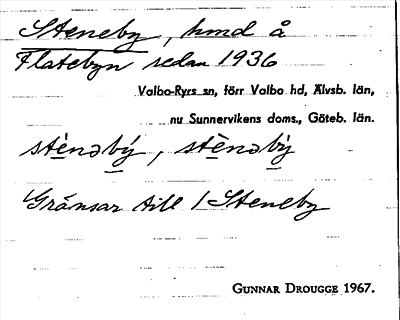 Steneby, hmd å
Flatebyn sedan 1936
Valbo-Ryrs sn, förr Valbo hd, Älvsb. län,
nu Sunnervikens doms., Göteb. län.
stè̱nəbý̱, stè̱nəbỳ̱
Gränsar till 1 Steneby
GUNNAR DROUGGE 1967.